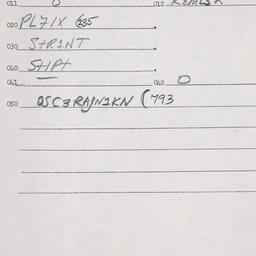 011 0 012
020 PL71X 235
030 S+R1NT
040 S+1P+
041 — 042 0
050 OSC3RAJN1KN (793